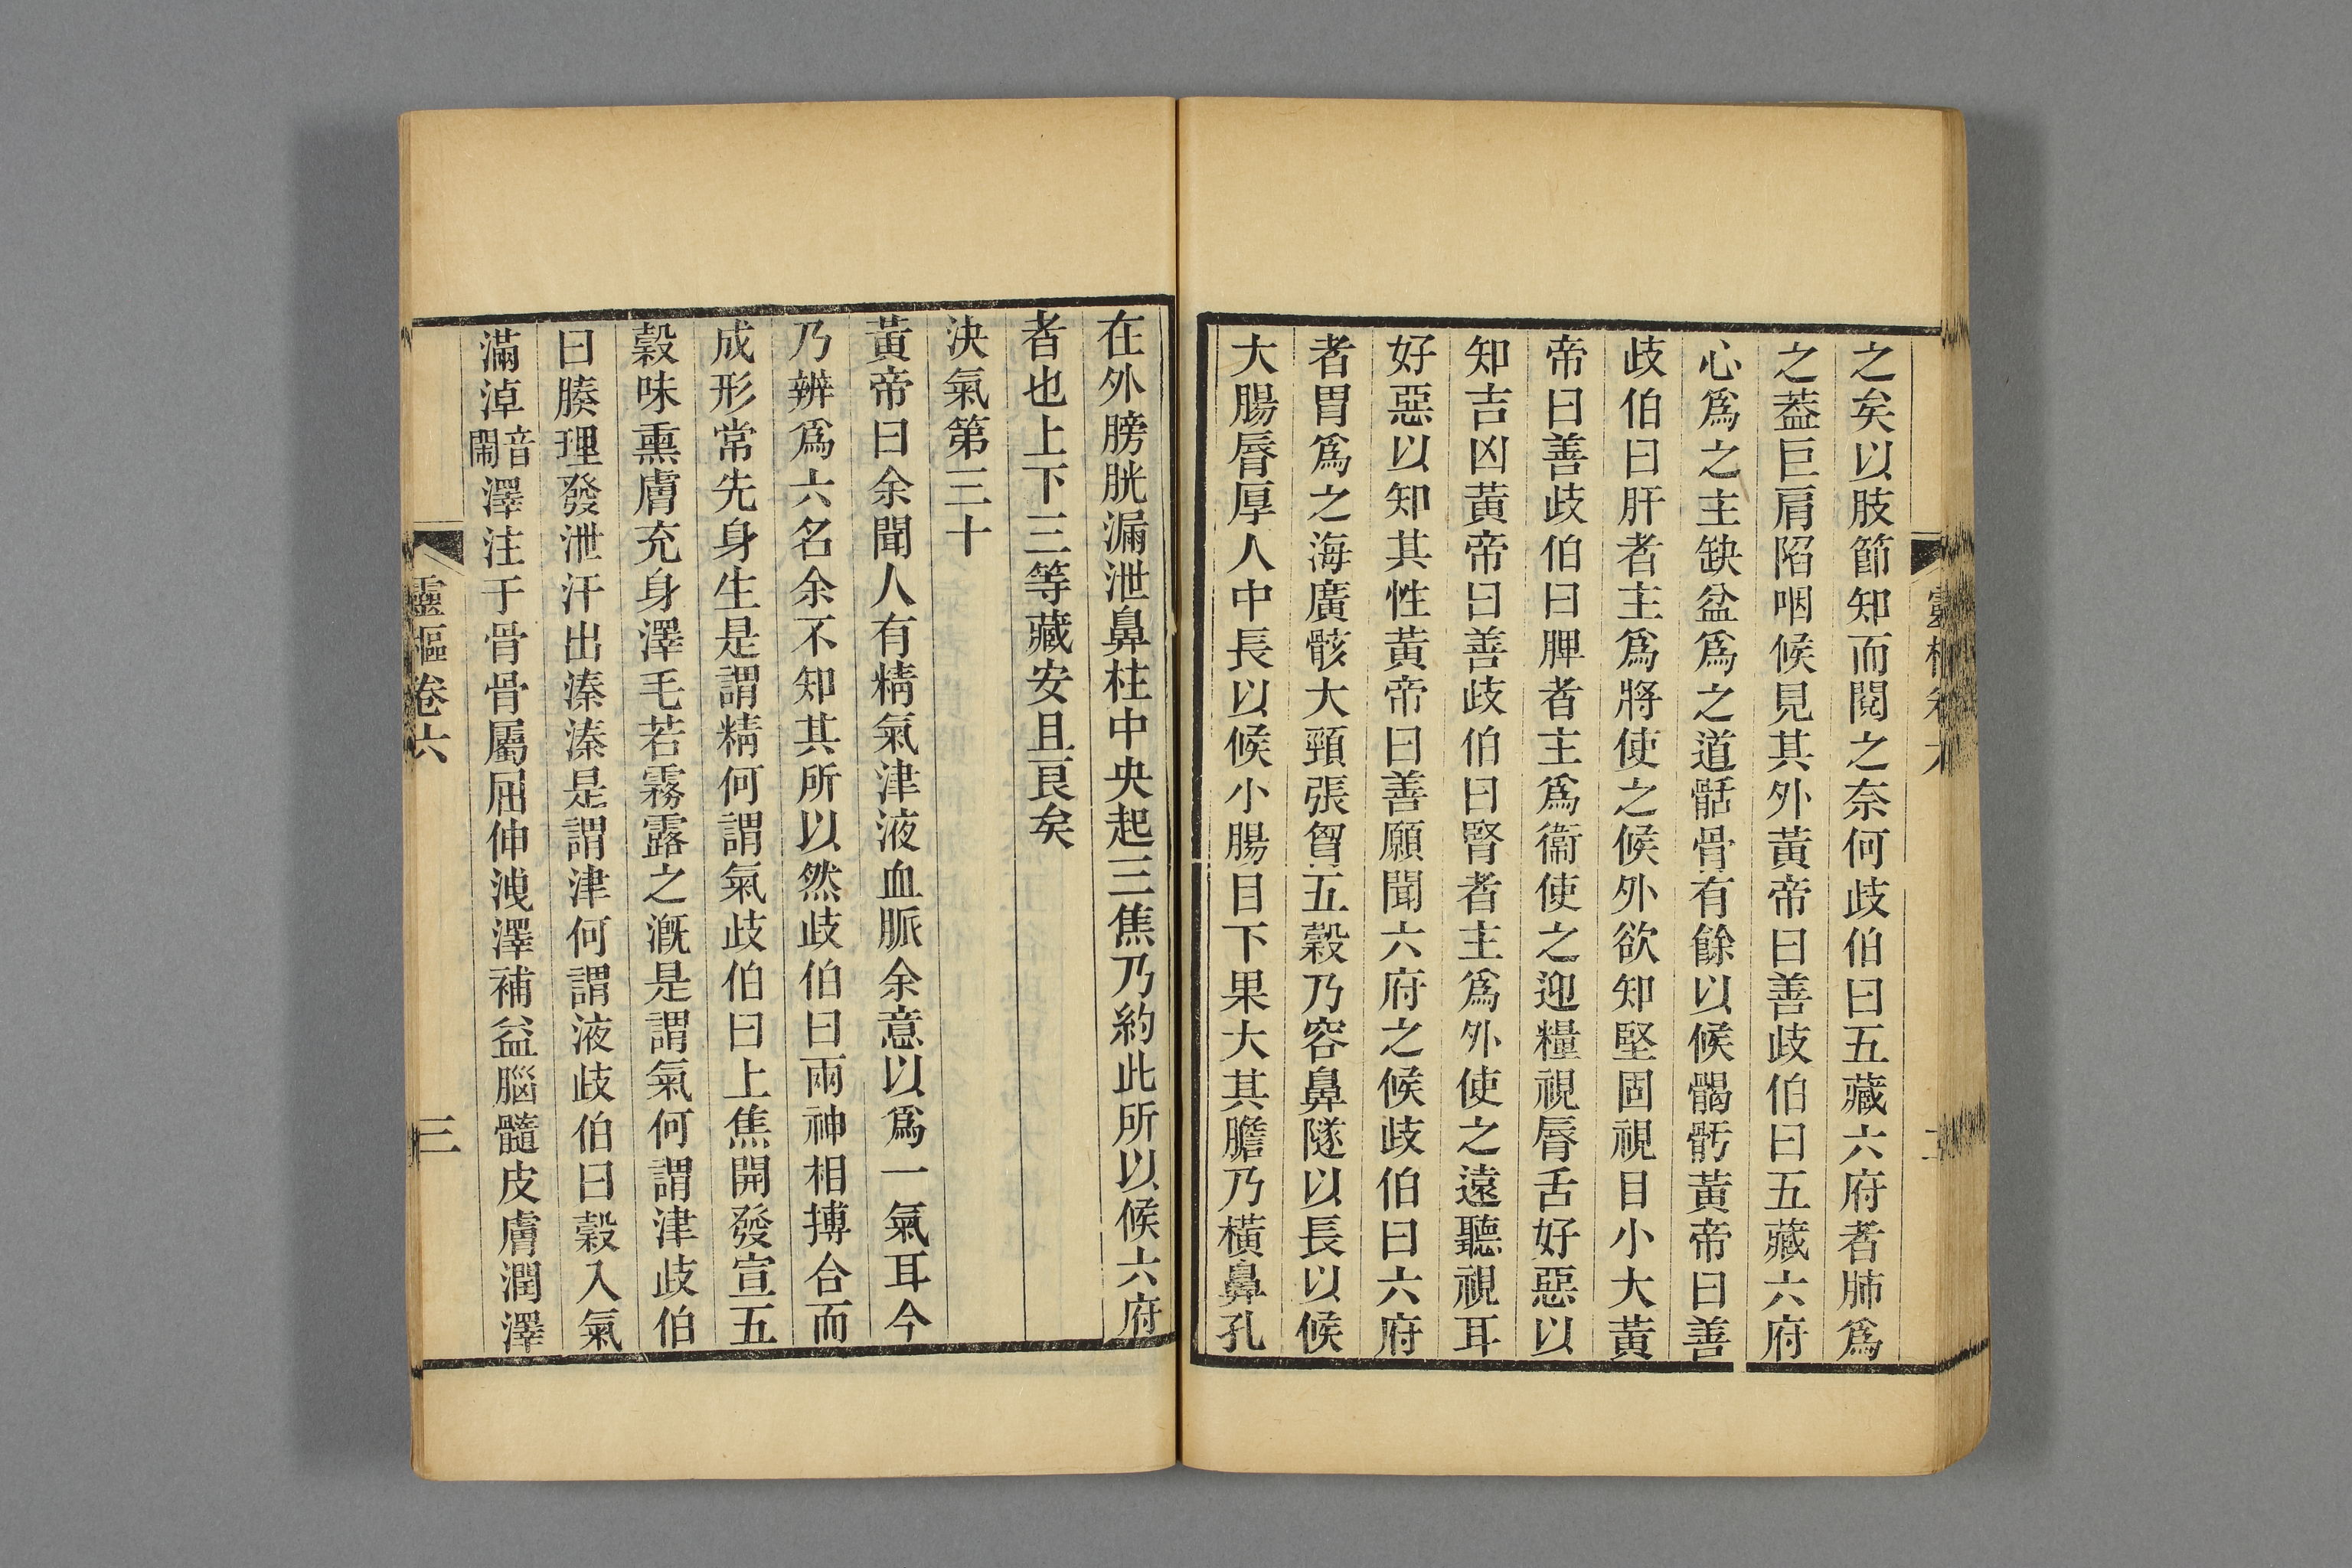 之矣以肢節知而閱之奈何歧伯曰五藏六府者肺爲
之葢巨肩陷咽候見其外黃帝曰善歧伯曰五藏六府
心爲之主缺盆爲之道骷骨有餘以候𩩲骬黃帝曰善
歧伯曰肝者主爲將使之候外欲知堅固視目小大黃
帝曰善歧伯曰脾者主爲衞使之迎糧視脣舌好惡以
知吉凶黃帝曰善歧伯曰腎者主爲外使之遠聽視耳
好惡以知其性黃帝曰善願聞六府之候歧伯曰六府
者胃爲之海廣骸大頸張胷五穀乃容鼻隧以長以候
大腸脣厚人中長以候小腸目下果大其膽乃橫鼻孔
在外膀胱漏泄鼻柱中央起三焦乃約此所以候六府
者也上下三等藏安且良矣
決氣第三十
黃帝曰余聞人有精氣津液血脈余意以爲一氣耳今
乃辨爲六名余不知其所以然歧伯曰兩神相搏合而
成形常先身生是謂精何謂氣歧伯曰上焦開發宣五
穀味熏膚充身澤毛若霧露之漑是謂氣何謂津歧伯
曰腠理發泄汗出溱溱是謂津何謂液歧伯曰穀入氣
滿淖音閙澤注于骨骨屬屈伸洩澤補益腦髓皮膚潤澤
靈樞卷六
三